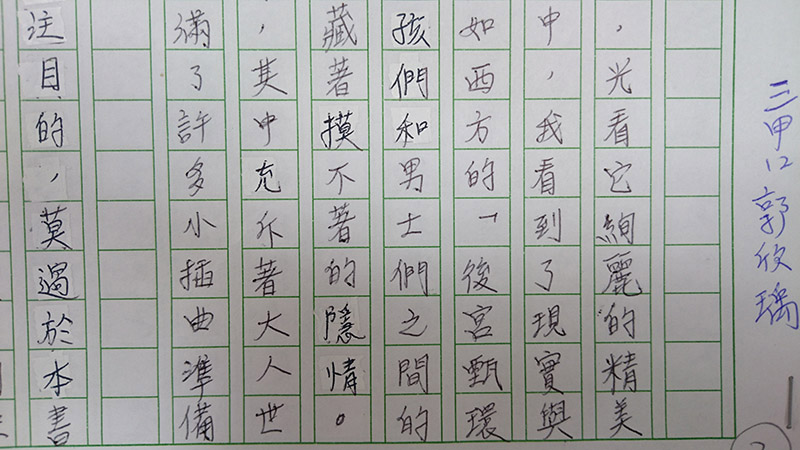 三甲12郭欣瑀
，光看它絢麗的精美
中，我看到了現實與
如西方的「後宮甄環
孩們和男士們之間的
藏著摸不著的隱情。
，其中充斥著大人世
滿了許多小插曲準備
注目的，莫過於本書